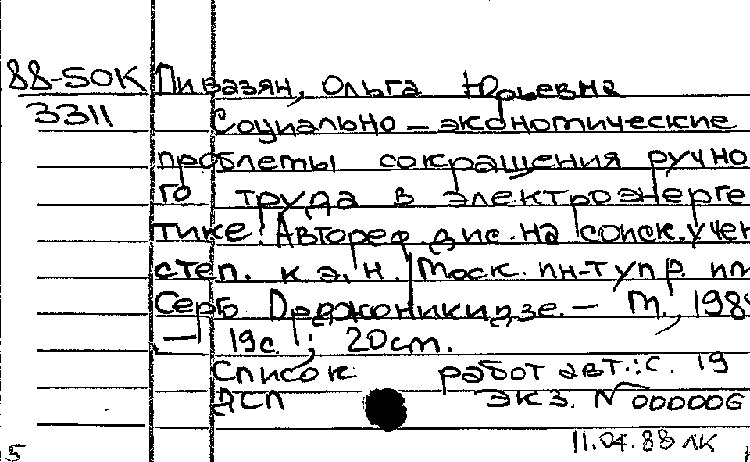 88-50К Пивазян, Ольга Юрьевна
3311 Социально-экономические
проблемы сокращения ручно
го труда в электроэнерге
тике: Автореф. дис. на соиск. учен
степ. к.э.н. / Моск. ин-т упр. им
Серго Орджоникидзе. – М., 198
– 19с.; 20см.
Список работ авт.: с. 19
ДСП экз. № 000006
11.04.88 ЛК
5